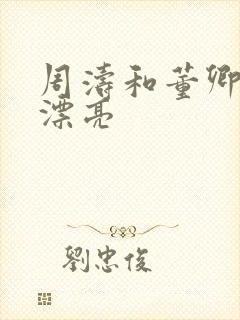 周濤和董卿
漂亮
劉忠俊